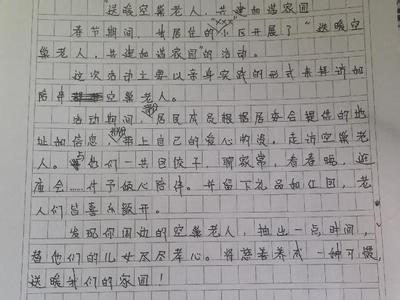 "送暖空巢老人，共建和谐家园
春节期间，我居住的"XXX"小区开展了"送暖空
巢老人，共建和谐家园"的活动。
这次活动主要以亲身实践的形式来拜访和
陪伴空巢老人。
活动期间，居民成员根据居委会提供的地
址和信息，带上自己的爱心物资，走访空巢老
人。与他们一共包饺子，聊家常，看春晚，逛
庙会……给予暖心陪伴。并留下礼品和红包，老
人们皆喜乐颜开。
发现你周边的空巢老人，抽出一点时间，
替他们的儿女尽尽孝心。将慈善养成一种习惯，
送暖我们的家园！